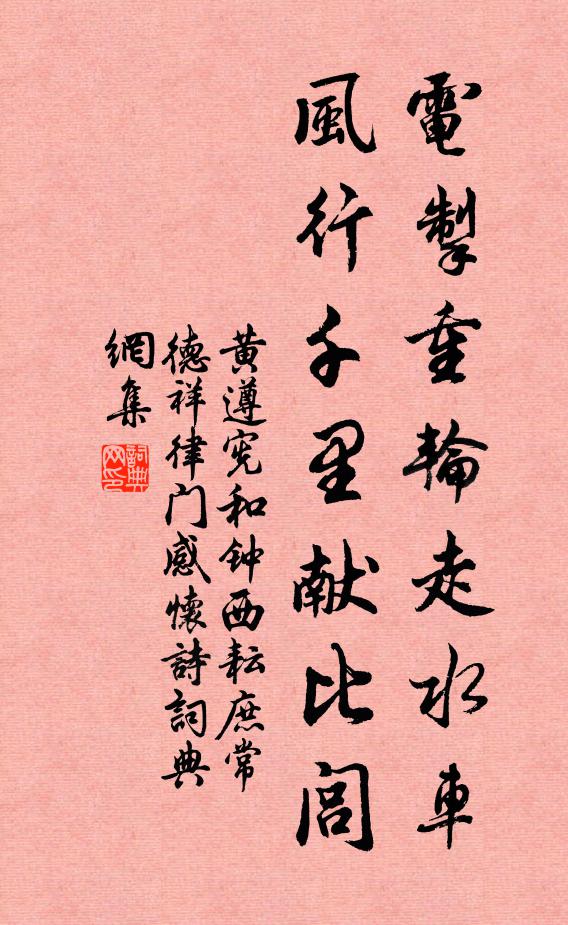 電掣重輪走水車
風行千里献比閭
黄遵宪和钟西耘庶常
德祥律门感懷詩詞典
網集
詞典網印